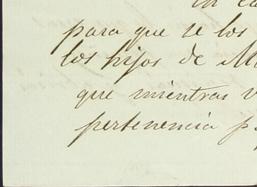 para que se los
los hijos de M
que mientras v
pertenencia p